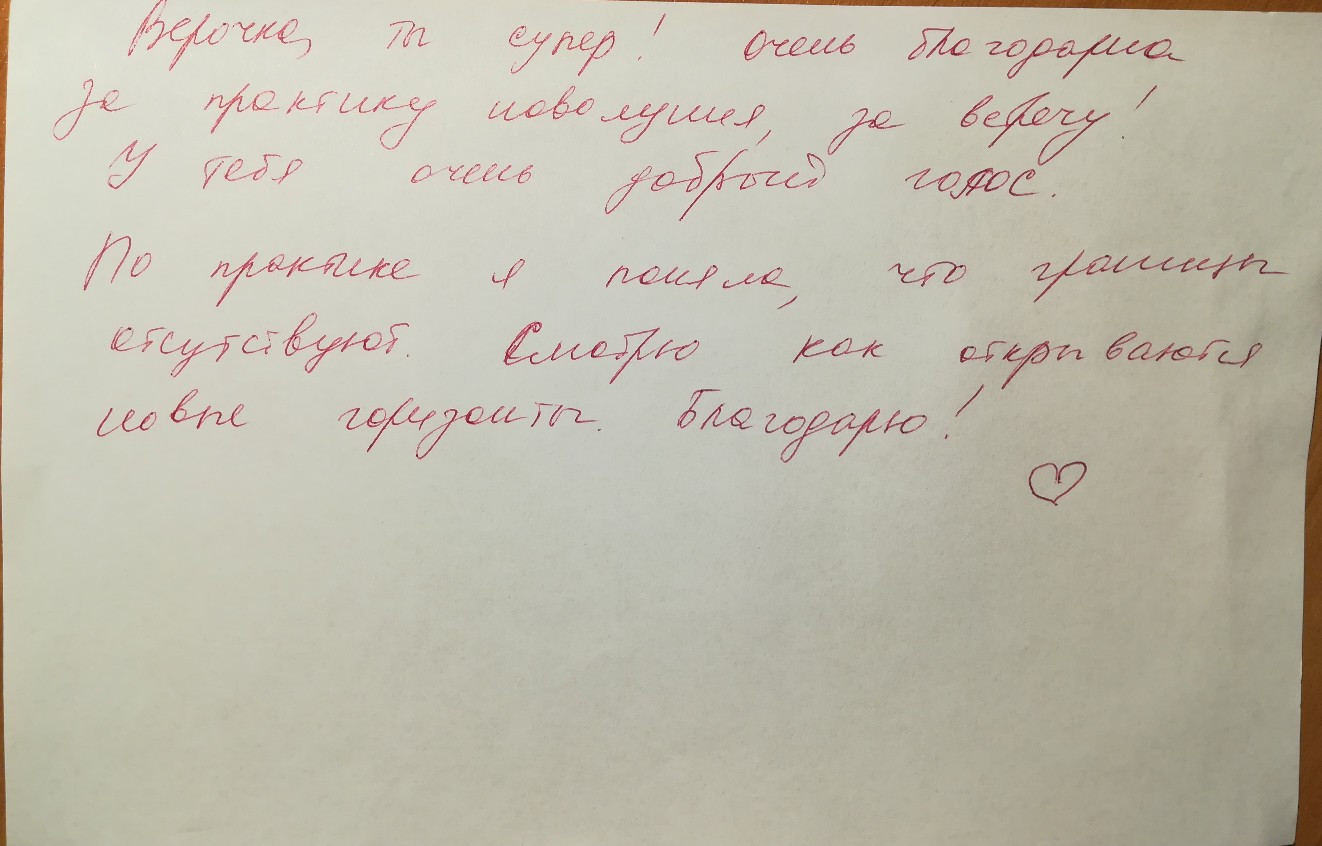 Верочка, ты супер! Очень благодарна
за практику новолуния, за встречу!
У тебя очень добрый голос.
По практике я поняла, что границы
отсутствуют. Смотрю как открываются
новые горизонты. Благодарю!